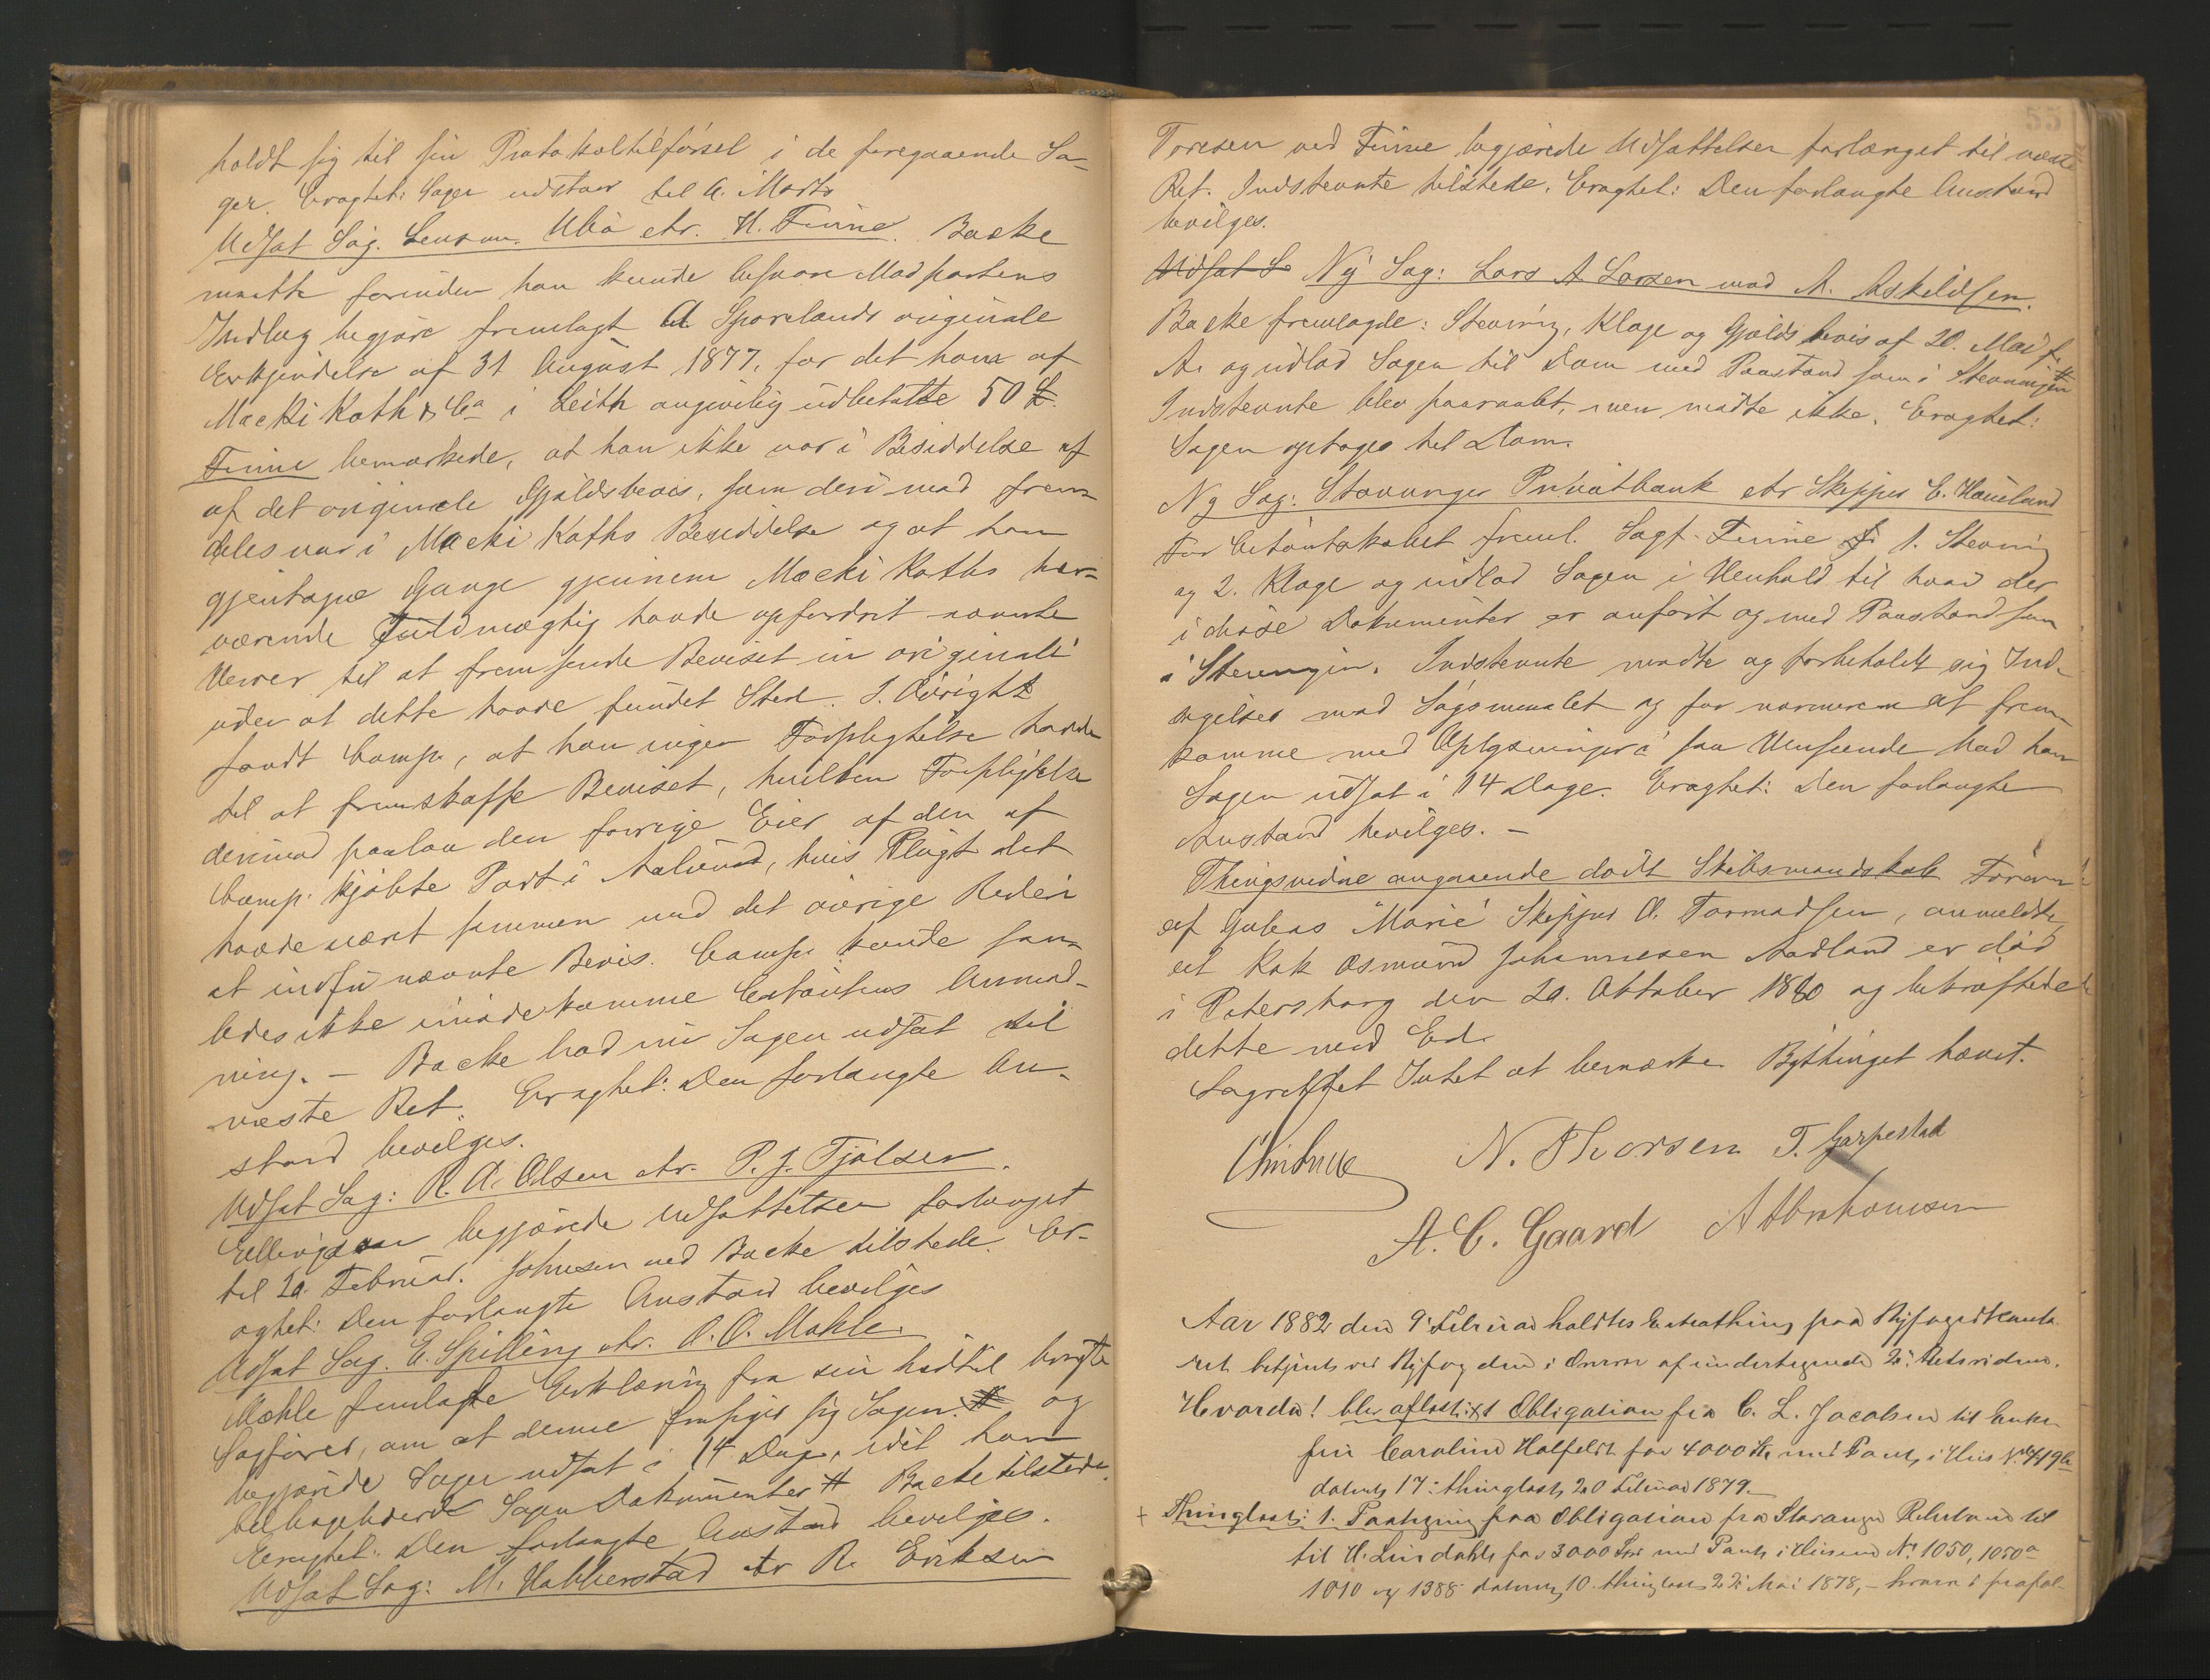 holdt sig til sin Protokoltilførsel i de foregaaende Sa-
ger. Eragtet: Sagen udstaar til 2. Marts
Udsat Sag. ctr. H. Finne. Backe
maatte forinden han kunde besvare Modpartens
Indlæg begjære fremlagt A. Sporelands originale
Erkjendelse af 31 August 1877, for det ham af
Macki Koth & Co i Leith angivelig udbetalte 50 £.
Finne bemærkede, at han ikke var i Besiddelse af
af det originale Gjældsbevis, som derimod frem-
deles var i Macki Koths Besiddelse og at han
gjentagne Gange gjennem Macki Koths her-
værende Fuldmægtig havde opfordret nævnte
Herrer til at fremsende Beviset in originali
uden at dette havde fundet Sted. I Øvrigt
fandt Comp., at han ingen Forpligtelse havde
til at fremskaffe Beviset, hvilken Forpligtelse
derimod paalaa den forrige Eier af den af
Comp. kjøbte Part i Aalsund, hvis Pligt det
havde været sammen med det øvrige Rederi
at indfri nævnte Bevis. Comp. kunde saa-
ledes ikke imødekomme Citantens Anmod-
ning. – Backe bad nu Sagen udsat til
næste Ret. Eragtet: Den forlangte An-
stand bevilges.
Udsat Sag: R. A. Olsen ctr. P. J. Tjølsen.
Ellingsen begjærede Udsættelsen forlænget
til 20. Februar. Johnsen ved Backe tilstede. Er-
agtet: Den forlangte Anstand bevilges
Udsat Sag. E. Spilling ctr. O. O. Møhle.
Møhle fremlagte Erklæring fra sin hidtil brugte
Sagfører, om at denne frasiger sig Sagen. # og
begjærede Sagen udsat i 14 Dage, idet han
tilbageleverede Sagens Dokumenter # Backe tilstede.
Eragtet: Den forlangte Anstand bevilges.
Udsat Sag: M. Habberstad ctr R. Eriksen
55
Toresen ved Finne begjærede Udsættelsen forlænget til næste
Ret. Indstevnte tilstede. Eragtet: Den forlangte Anstand
bevilges.
Udsat S. Ny Sag: Lars A Larsen mod A. Askildsen.
Backe fremlagde: Stevning, Klage og Gjældsbevis af 20. Mai f.
A. og indlod Sagen til Dom med Paastand som i Stevningen #
Indstevnte blev paaraabt, men mødte ikke. Eragtet:
Sagen optages til Dom.
Ny Sag: Stavanger Privatbank ctr Skipper E. Haueland
For Citantskabet freml. Sagf. Finne 1. Stevning
og 2. Klage og indlod Sagen i Henhold til hvad der
i disse Dokumenter er anført og med Paastand som
i Stevningen. Indstevnte mødte og forbeholdt sig Ind-
sigelser mod Søgsmaalet og for nærmere at frem-
komme med Oplysninger i saa Henseende bad han
Sagen udsat i 14 Dage. Eragtet: Den forlangte
Anstand bevilges. –
Thingsvidne angaaende dødt Skibsmandskab Føreren
af Galeas "Marie" Skipper O. Tormodsen, anmeldte,
at Kok Osmund Johannesen Aadland er død
i Petersborg den 20. Oktober 1880 og bekræftede
dette med Ed.
Lagrettet Intet at bemærke. Bythinget hævet.
N. Thorsen T. Garpestad
A. C. Gaard A Abrahamsen
Aar 1882 den 9 Februar holdtes Extrathing paa Byfogedkonto-
ret betjent ved Byfogden i Overvær af undertegnede 2de Retsvidner.
Hvorda! blev aflæst: Obligation fra C. L. Jacobsen til Enke-
fru Caroline Halfeldt for 4000 Kr med Pant i Hus No 419b
dateret 17: thinglæst 20 Februar 1879. –
+ Thinglæst: 1. Paategning paa Obligation fra Stavanger til
til H. Lindahls for 3000 med Pant i Husene No 1050, 1050a
1010 og 1388 dateret 10. thinglæst 22 Mai 1878, – hvorved